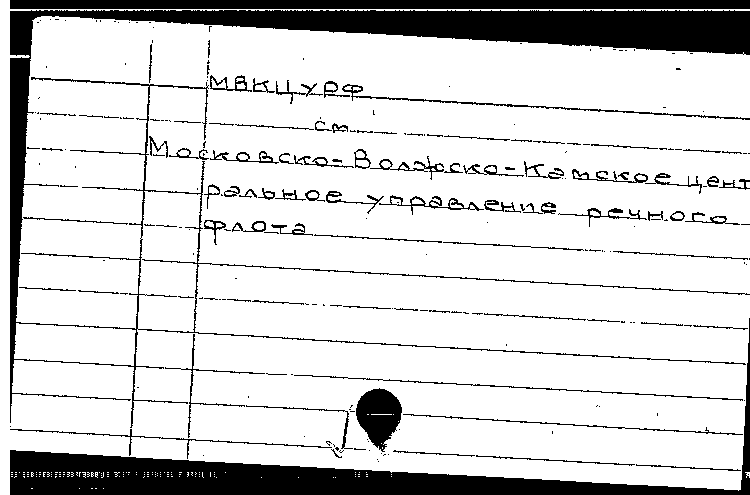 МВКЦУРФ
см.
Московско-Волжско-Камское цент
ральное управление речного
флота